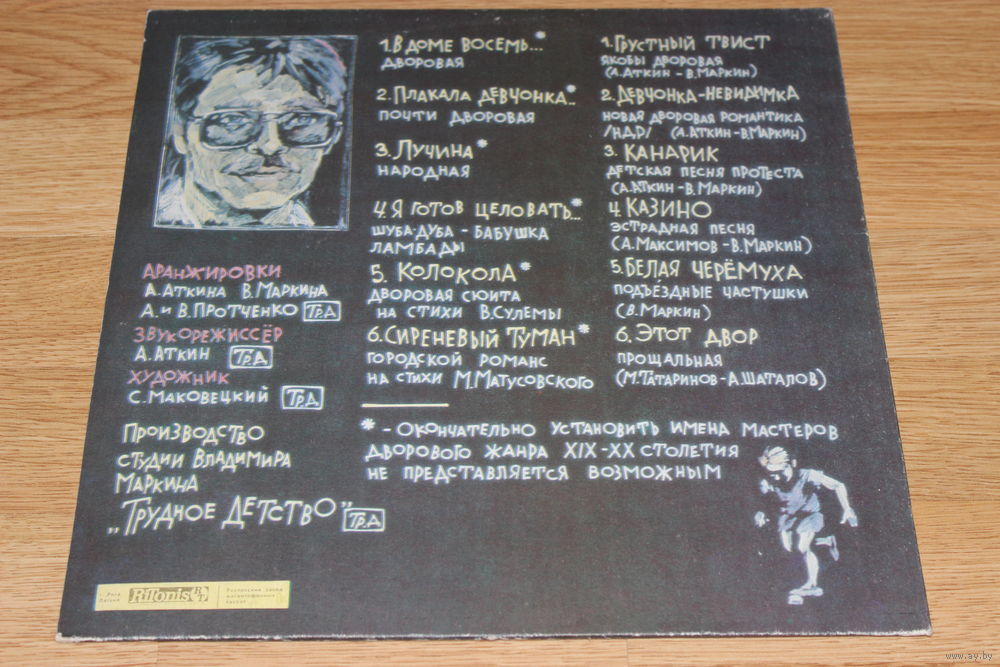 1. В ДОМЕ ВОСЕМЬ...*
ДВОРОВАЯ
2. ПЛАКАЛА ДЕВЧОНКА..*
ПОЧТИ ДВОРОВАЯ
3. ЛУЧИНА*
НАРОДНАЯ
4. Я ГОТОВ ЦЕЛОВАТЬ...*
ШУБА-ДУБА - БАБУШКА
ЛАМБАДЫ
5. КОЛОКОЛА*
ДВОРОВАЯ СЮИТА
НА СТИХИ В.СУЛЕМЫ
6. СИРЕНЕВЫЙ ТУМАН*
ГОРОДСКОЙ РОМАНС
НА СТИХИ М.МАТУСОВСКОГО
1. ГРУСТНЫЙ ТВИСТ
ЯКОБЫ ДВОРОВАЯ
(А.АТКИН-В.МАРКИН)
2. ДЕВЧОНКА-НЕВИДИМКА
НОВАЯ ДВОРОВАЯ РОМАНТИКА
/НДР/ (А.АТКИН-В.МАРКИН)
3. КАНАРИК
ДЕТСКАЯ ПЕСНЯ ПРОТЕСТА
(А.АТКИН-В.МАРКИН)
4. КАЗИНО
ЭСТРАДНАЯ ПЕСНЯ
(А.МАКСИМОВ-В.МАРКИН)
5. БЕЛАЯ ЧЕРЁМУХА
ПОДЪЕЗДНЫЕ ЧАСТУШКИ
(В.МАРКИН)
6. ЭТОТ ДВОР
ПРОЩАЛЬНАЯ
(М.ТАТАРИНОВ-А.ШАТАЛОВ)
* - ОКОНЧАТЕЛЬНО УСТАНОВИТЬ ИМЕНА МАСТЕРОВ
ДВОРОВОГО ЖАНРА XIX-XX СТОЛЕТИЯ
НЕ ПРЕДСТАВЛЯЕТСЯ ВОЗМОЖНЫМ
АРАНЖИРОВКИ
А.АТКИНА В.МАРКИНА
А. И В.ПРОТЧЕНКО ТР.Д
ЗВУКОРЕЖИССЁР
А.АТКИН ТР.Д
ХУДОЖНИК
С.МАКОВЕЦКИЙ ТР.Д
ПРОИЗВОДСТВО
СТУДИИ ВЛАДИМИРА
МАРКИНА
„ТРУДНОЕ ДЕТСТВО" ТР.Д
RiTonis RT
www.ay.by